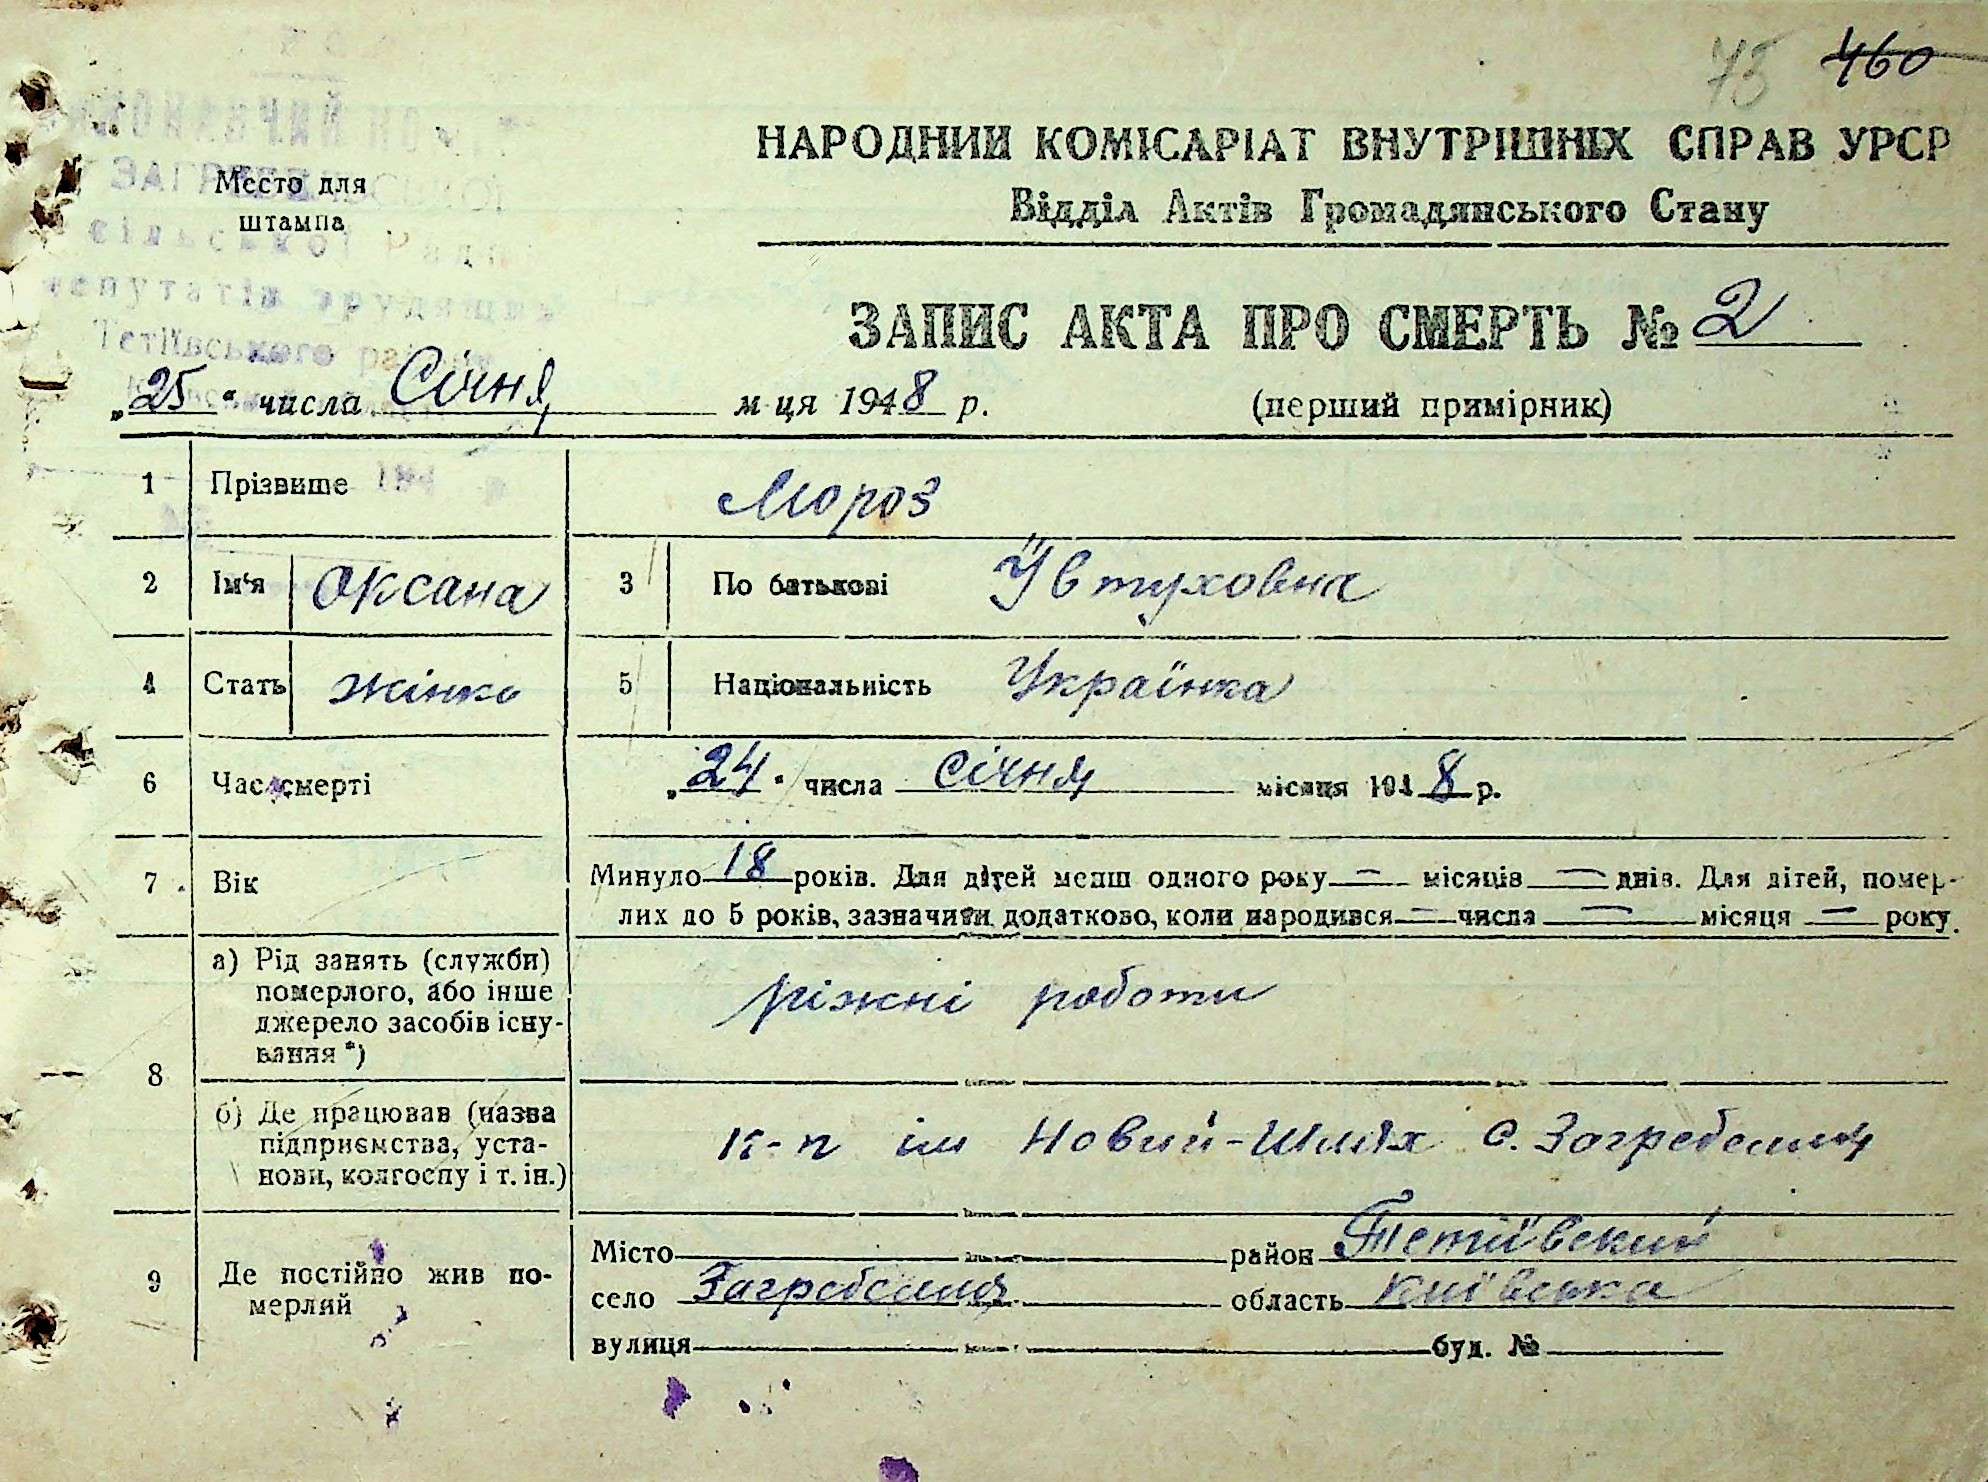 75 460
НАРОДНИЙ КОМІСАРІАТ ВНУТРІШНІХ СПРАВ УРСР
Відділ Актів Громадянського Стану
ЗАГРЕБЕЛЬСЬКОЇ
Место для
штампа
сільської Ради
депутатів трудящих
Тетіївського району
ЗАПИС АКТА ПРО СМЕРТЬ № 2
„25“ числа Січня м-ця 1948 р.
(перший примірник)
1 Прізвише Мороз
2 Ім'я Оксана 3 По батькові Ївтуховна
4 Стать жінка 5 Національність Українка
6 Час смерті „24“ числа січня місяця 1948 р.
7 Вік Минуло 18 років. Для дітей менш одного року — місяців — днів. Для дітей, помер-
лих до 5 років, зазначити додатково, коли народився — числа — місяця — року.
8 а) Рід занять (служби)
померлого, або інше
джерело засобів існу-
вання *)
ріжні роботи
б) Де працював (назва
підприємства, уста-
нови, колгоспу і т. ін.)
к-п ім Новий-Шлях с. Загребелля
9 Де постійно жив по-
мерлий
Місто район Тетіївский
село Загребелля область київська
вулиця буд. №